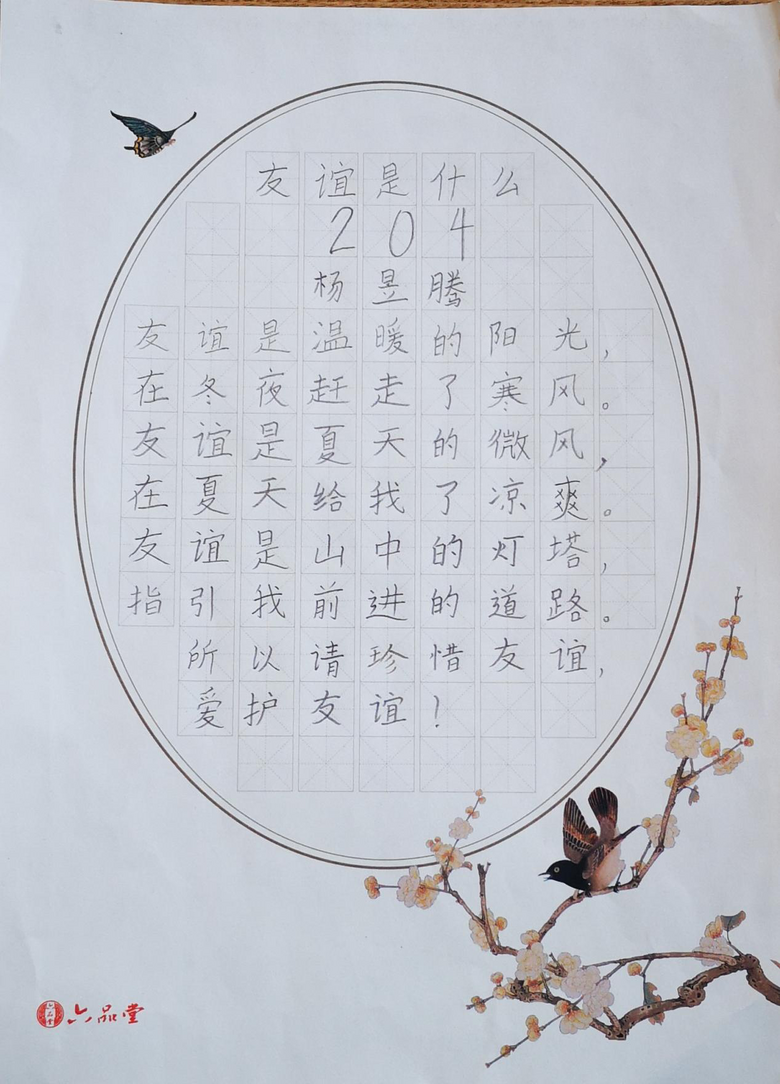 友谊是什么
204
杨昱腾
友谊是温暖的阳光，
在冬夜赶走了寒风。
友谊是夏天的微风，
在夏天给我了凉爽。
友谊是山中的灯塔，
指引我前进的道路。
所以请珍惜友谊，
爱护友谊！
六品堂